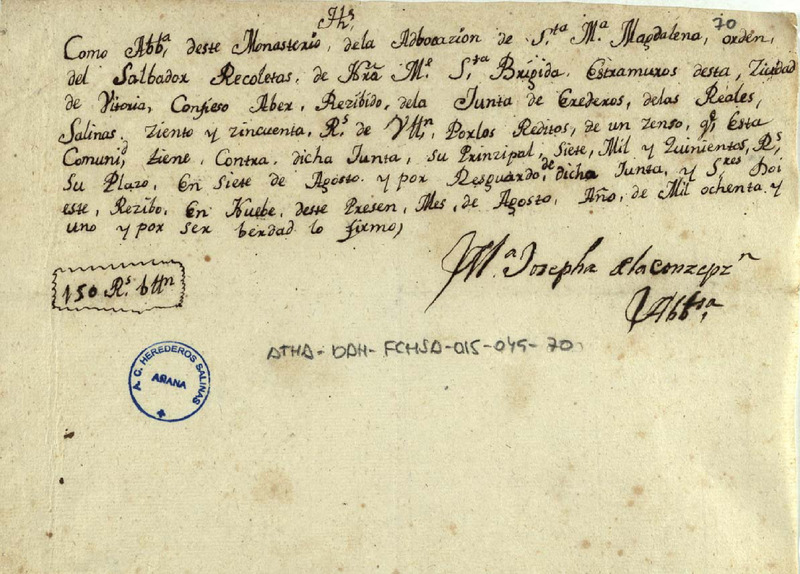 Jhs
70
Como Abb.ta deste Monasterio, dela Advocazion de S.ta M.a Magdalena, orden,
del Salbador Recoletas, de Nrã M.e S.ta Brigida. Extramuros desta, Ziudad
de Vitoria, Confieso Aber, Rezibido, dela Junta de Erederos, delas Reales,
Salinas. Ziento y zincuenta, R.s de Vttn, Porlos Reditos, de un zenso, q.e Esta
Comuni.d tiene, Contra, dicha Junta, su Prinzipal, Siete, Mil y Quinientos, R.s
Su Plazo, En Siete de Agosto y por Resguardo, de dicha Junta, y S.res Doi
este, Rezibo, En Nuebe, deste Presen, Mes, de Agosto, Año, de Mil ochenta y
uno y por ser berdad lo firmo,
M.a Josepha delaconzepz.n
Abb.sa
150 R.s bttn
ATHA-DAH-FCHSA-015-045-70
A. C. HEREDEROS SALINAS
AÑANA